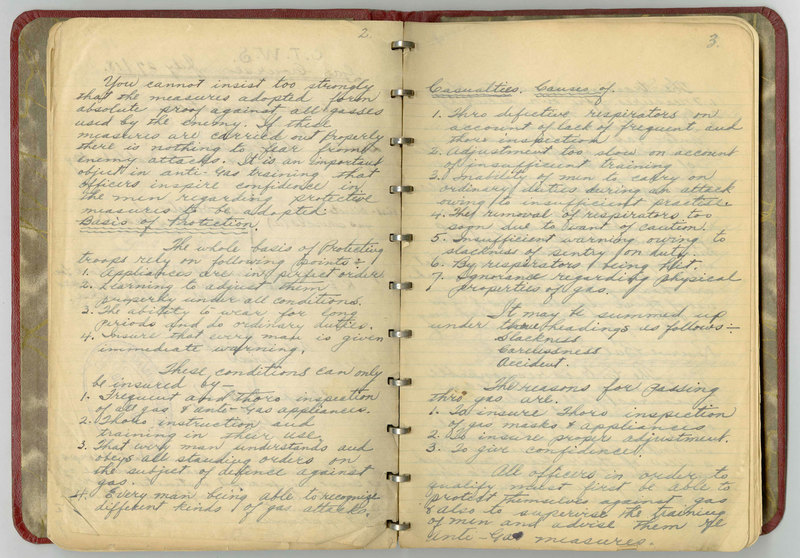 2.
You cannot insist too strongly
that the measures adopted form
absolute proof against all gasses
used by the enemy. If these
measures are carried out properly
there is nothing to fear from
enemy attacks. It is an important
object in anti-Gas training that
officers inspire confidence in
the men regarding protective
measures to be adopted.
Basis of Protection.
The whole basis of Protecting
troops rely on following points:-
1. Appliances are in perfect order
2. Learning to adjust them
properly under all conditions.
3. The ability to wear for long
periods and do ordinary duties.
4. Insure that every man is given
immediate warning.
These conditions can only
be insured by—
1. Frequent and thoro inspection
of all gas & anti-Gas appliances.
2. Thoro instruction and
training in their use.
3. That every man understands and
obeys all standing orders on
the subject of defense against
gas.
4. Every man being able to recognize
different kinds of gas attacks.
3.
Casualties. Causes of.
1. Thro difective respirators on
account of lack of frequent and
thoro inspection
2. Adjustment too slow on account
of insufficient training
3. Inability of men to carry on
ordinary duties during an attack
owing to insufficient practise.
4. The removal of respirators too
soon due to want of caution.
5. Insufficient warning owing to
slackness of sentry on duty
6. By respirators being hit.
7. Ignorance regarding physical
properties of gas.
It may be summed up
under three headings as follows:-
Slackness
Carelessness
Accident.
The reasons for passing
thro gas are.
1. To insure thoro inspection
of gas masks & appliances
2. To insure proper adjustment.
3. To give confidence.
All officers in order to
qualify must first be able to
protect themselves against gas
& also to supervise the training
of men and advise them re
anti-Gas measures.